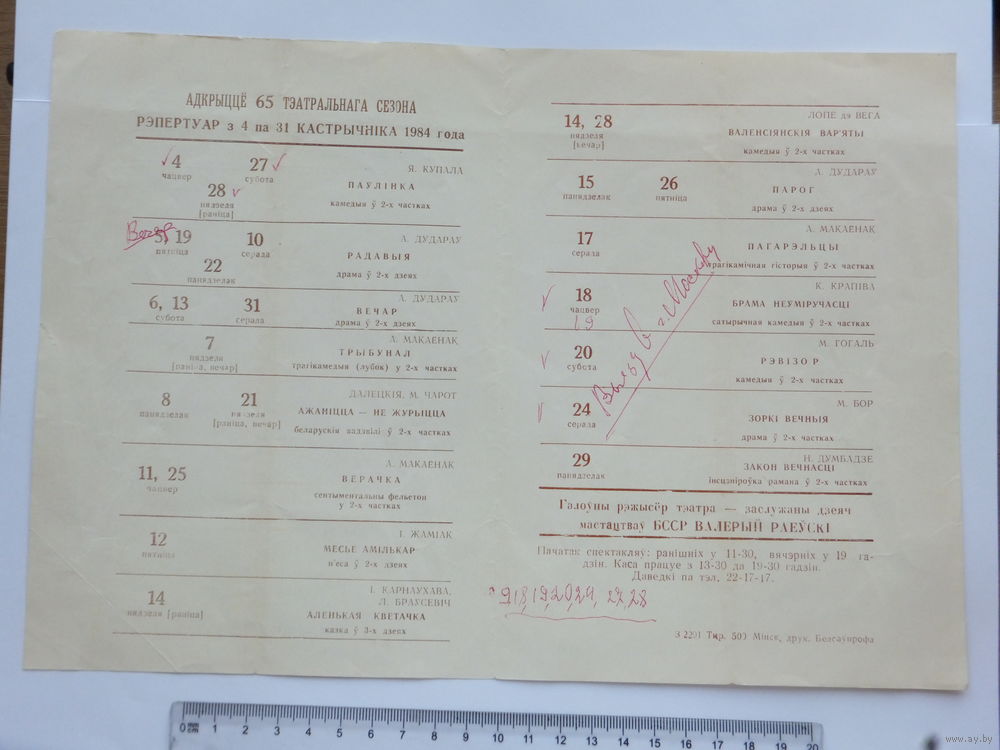 АДКРЫЦЦЁ 65 ТЭАТРАЛЬНАГА СЕЗОНА
РЭПЕРТУАР з 4 па 31 КАСТРЫЧНІКА 1984 года
4 27
чацвер субота
28
нядзеля
[раніца]
Я. КУПАЛА
ПАУЛІНКА
камедыя ў 2-х частках
5, 19 10
пятніца серада
22
панядзелак
А. ДУДАРАУ
РАДАВЫЯ
драма ў 2-х дзеях
6, 13 31
субота серада
А. ДУДАРАУ
ВЕЧАР
драма ў 2-х дзеях
7
нядзеля
[раніца, вечар]
А. МАКАЕНАК
ТРЫБУНАЛ
трагікамедыя (лубок) у 2-х частках
8 21
панядзелак нядзеля
[раніца, вечар]
ДАЛЕЦКІЯ, М. ЧАРОТ
АЖАНІЦЦА — НЕ ЖУРЫЦЦА
беларускія вадэвілі ў 2-х частках
11, 25
чацвер
А. МАКАЕНАК
ВЕРАЧКА
сентыментальны фельетон
у 2-х частках
12
пятніца
І. ЖАМІАК
МЕСЬЕ АМІЛЬКАР
п'еса ў 2-х дзеях
14
нядзеля [раніца]
І. КАРНАУХАВА,
Л. БРАУСЕВІЧ
АЛЕНЬКАЯ КВЕТАЧКА
казка ў 3-х дзеях
14, 28
нядзеля
[вечар]
ЛОПЕ дэ ВЕГА
ВАЛЕНСІЯНСКІЯ ВАР'ЯТЫ
камедыя ў 2-х частках
15 26
панядзелак пятніца
А. ДУДАРАУ
ПАРОГ
драма ў 2-х дзеях
17
серада
А. МАКАЕНАК
ПАГАРЭЛЬЦЫ
трагікамічная гісторыя ў 2-х частках
18
чацвер
19
К. КРАПІВА
БРАМА НЕУМІРУЧАСЦІ
сатырычная камедыя ў 2-х частках
20
субота
М. ГОГАЛЬ
РЭВІЗОР
камедыя ў 2-х частках
24
серада
М. БОР
ЗОРКІ ВЕЧНЫЯ
драма ў 2-х частках
29
панядзелак
Н. ДУМБАДЗЕ
ЗАКОН ВЕЧНАСЦІ
інсцэніроўка рамана ў 2-х частках
Галоўны рэжысёр тэатра — заслужаны дзеяч
мастацтваў БССР ВАЛЕРЫЙ РАЕЎСКІ
Пачатак спектакляў: ранішніх у 11-30, вячэрніх у 19 га-
дзін. Каса працуе з 13-30 да 19-30 гадзін.
Даведкі па тэл. 22-17-17.
З 2201 Тир. 500 Мінск, друк. Белсаўпрофа
в г. Москву
0 1 2 3 4 5 6 7 8 9 10 11 12 13 14 15 16 17 18 19 20
www.ay.by